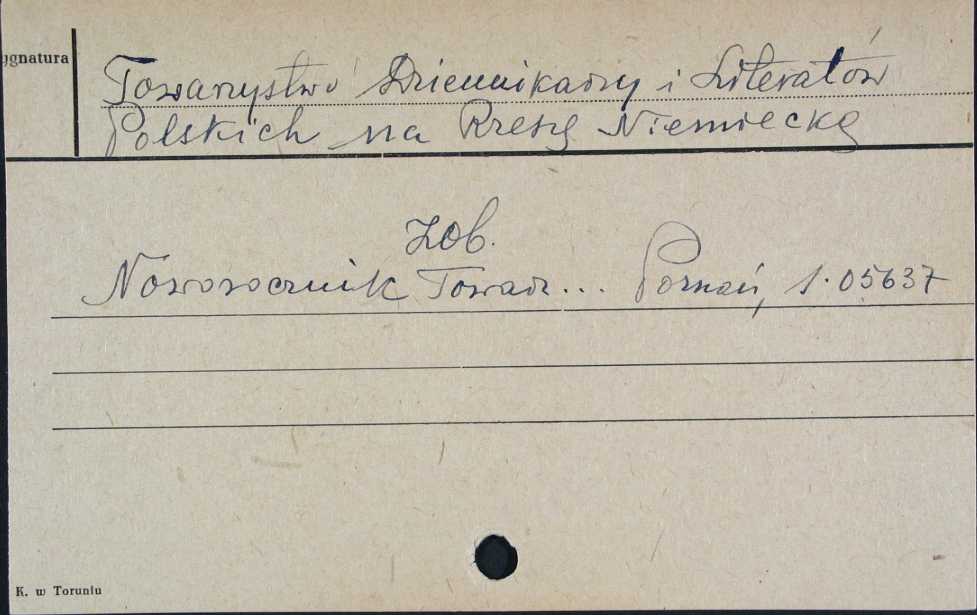 ygnatura
Towarzystwo Dziennikarzy i Literatów
Polskich na Rzeszę Niemiecką
Zob.
Noworocznik Towarz... Poznań, 1. 05637
K. w Toruniu